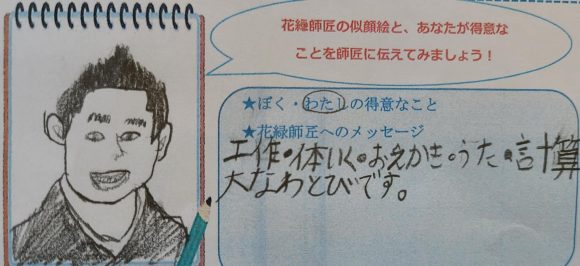 花緑師匠の似顔絵と、あなたが得意な
ことを師匠に伝えてみましょう！
★ぼく・わたしの得意なこと
★花緑師匠へのメッセージ
工作・体いく・おえかき・うた・計算
大なわとびです。